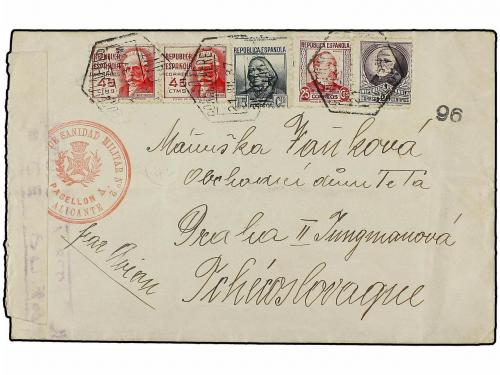 REPUBLICA ESPAÑOLA
CORREOS
45 CTMS
REPUBLICA ESPAÑOLA
CORREOS
45 CTMS
REPUBLICA ESPAÑOLA
15 Cts
REPUBLICA ESPAÑOLA
25 Cts
96
SANIDAD MILITAR Nº 2
PABELLON A.
ALICANTE
Maruška Vaňková
Obchodní dům TeTa
Praha II Jungmanová
Tchécoslovaque
par Avion